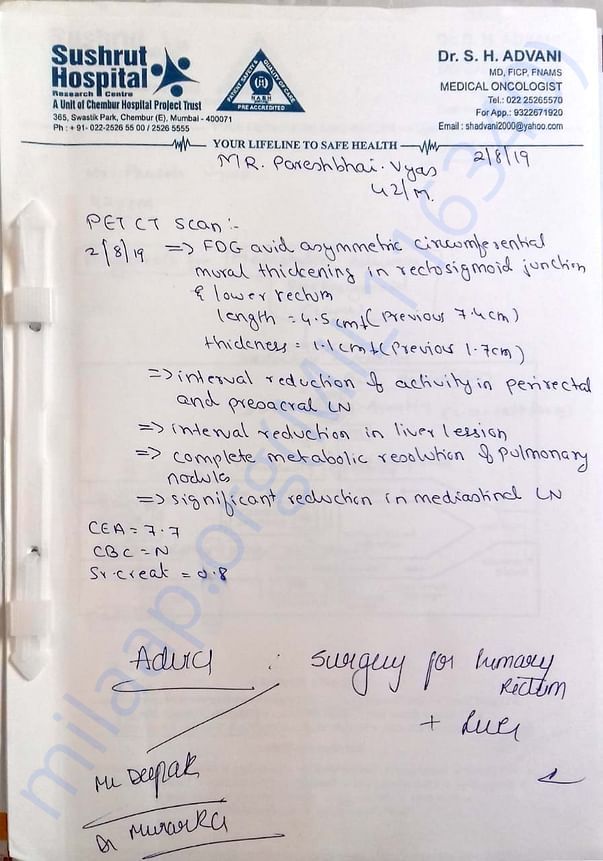 Sushrut
Hospital
Research Centre
A Unit of Chembur Hospital Project Trust
365, Swastik Park, Chembur (E), Mumbai - 400071
Ph : + 91- 022-2526 55 00 / 2526 5555
PATIENT SAFETY & QUALITY OF CARE
NABH
PRE ACCREDITED
Dr. S. H. ADVANI
MD, FICP, FNAMS
MEDICAL ONCOLOGIST
Tel.: 022 25265570
For App.: 9322671920
Email : shadvani2000@yahoo.com
YOUR LIFELINE TO SAFE HEALTH
MR. Pareshbhai. Vyas
2/8/19
42/M.
PET CT Scan :-
2/8/19 => FDG avid asymmetric circumferential
mural thickening in rectosigmoid junction
& lower rectum
length = 4.5 cm (Previous 7.4cm)
thickness = 1.1cm (Previous 1.7cm)
=> interval reduction of activity in perirectal
and presacral LN
=> interval reduction in liver lession
=> complete metabolic resolution of pulmonary
nodules
=> significant reduction in mediastinal LN
CEA = 7.7
CBC = N
Sr. creat = 0.8
Advice : Surgery for Primary
Rectum
+ Liver
Mr Deepak
Dr Murarka
milaap.org